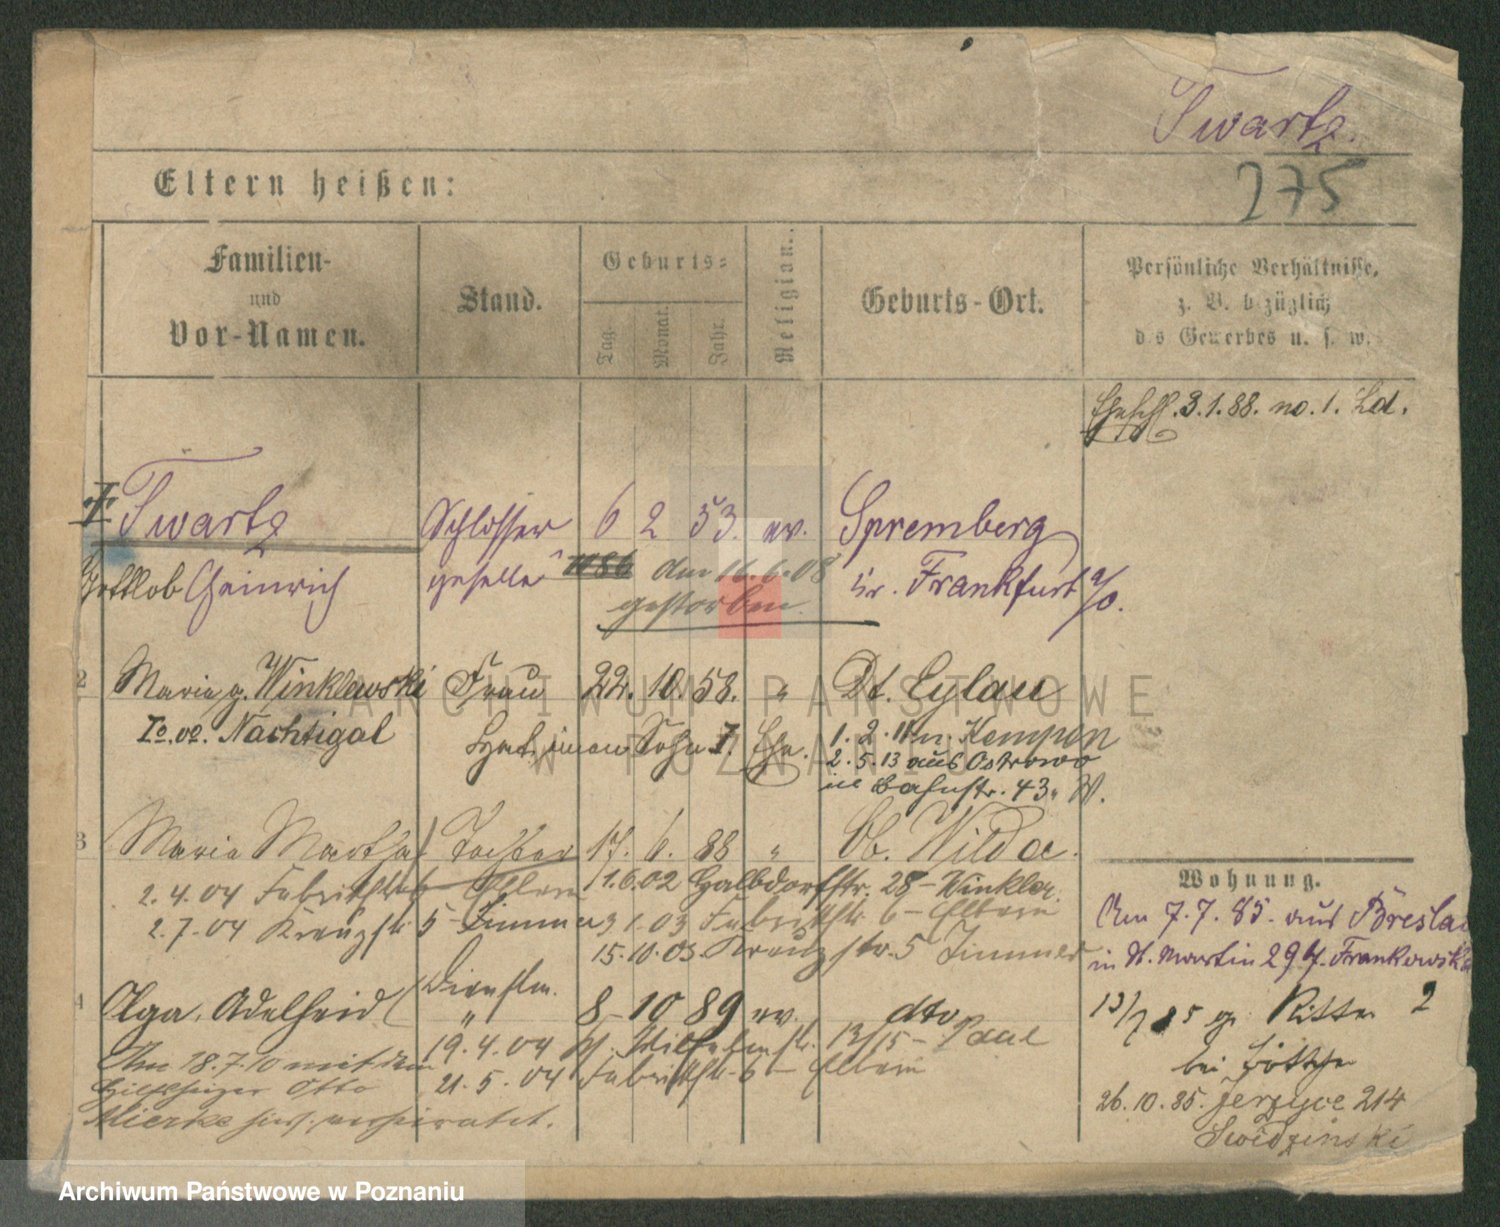 Twartz.
275
Eltern heißen:
Familien-
und
Vor-Namen.
Stand.
Geburts-
Tag.
Monat.
Jahr.
Religion.
Geburts-Ort.
Persönliche Verhältnisse,
z. B. bezüglich
des Gewerbes u. s. w.
Eheschl. 3.1.88. no. 1. Ld.
Twartz Schlosser 6 2 53. ev. Spremberg
Gottlob Heinrich geselle den 16.6.08 Kr. Frankfurt a/O.
gestorben.
2 Maria g. Winklewski Frau 22. 10. 58. " Dt. Eylau
Io. vo. Nachtigal Hat einen Sohn I. Ehe. 1. 2. 11 n. Kempen
2. 5. 13 aus Ostrowo
in Bahnstr. 43. W.
3 Maria Martha Tochter 17. 6. 88 " Ob. Wilda.
2.4.04 Fabrikstr. 6 Eltern 1.6.02 Halbdorfstr. 28 - Winkler.
2.7.04 Kreuzstr. 5 - Zimmer 3 1.03 Fabrikstr. 6 - Eltern
15.10.03 Kreuzstr. 5 Zimmer
Wohnung.
Am 7.7.85. aus Breslau
in St. Martin 29 Frankowska
13/7 85 gr. Ritter 2
bei Böttcher
26.10.85. Jerzyce 214
Swidzinski
4 Olga, Adelheid Dienstm. 8 10 89 ev. dto
" 19.4.04 Wilhelmstr. 13/15 - Paul
21.5.04 Fabrikstr. 6 - Eltern
Am 18.7.10 mit dem
Hilfsheizer Otto
Mierke hier verheiratet.
ARCHIWUM PAŃSTWOWE
W POZNANIU
Archiwum Państwowe w Poznaniu